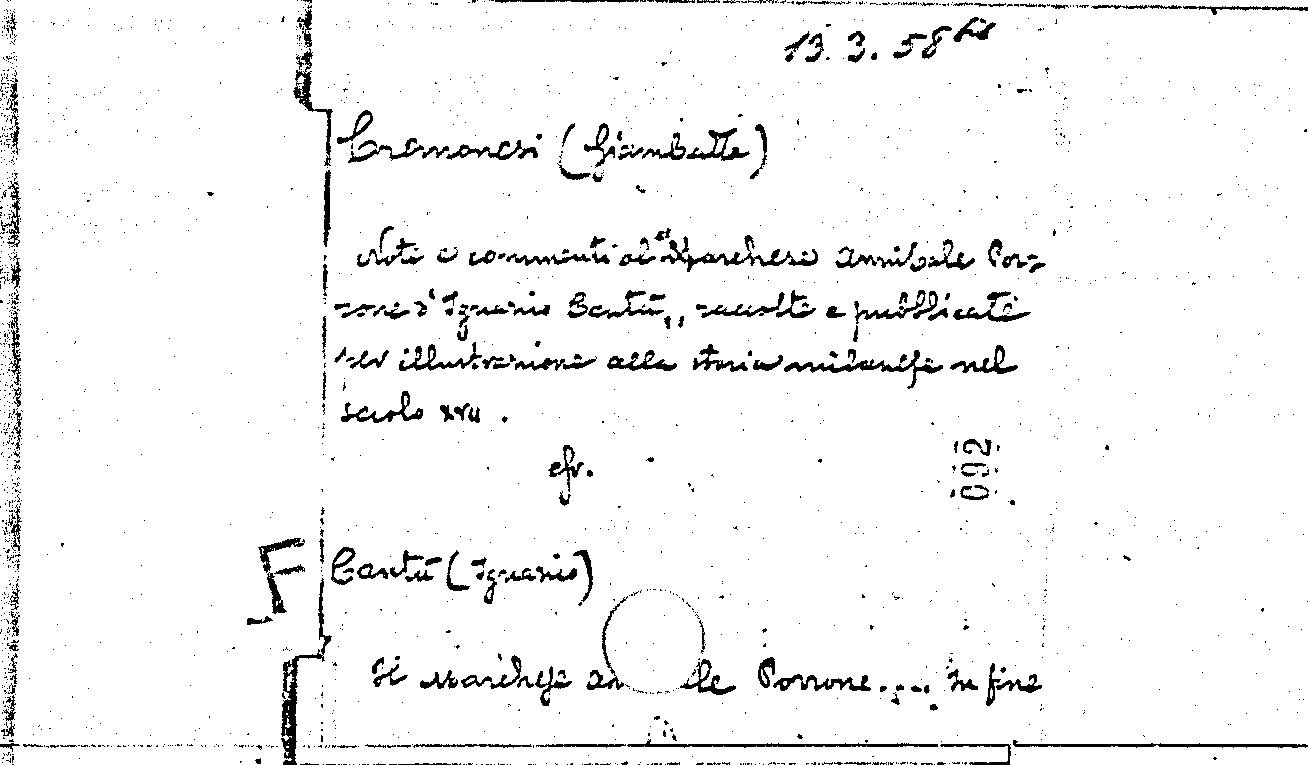 13. 3. 58 bis
Cremonesi (Giambatta)
Note e commenti al "Marchese Annibale Por-
rone d'Ignazio Cantù,, raccolte e pubblicate
per illustrazione alla storia milanese nel
secolo XVII.
cfr.
092
F
Cantù (Ignazio)
Il Marchese An le Porrone.... In fine